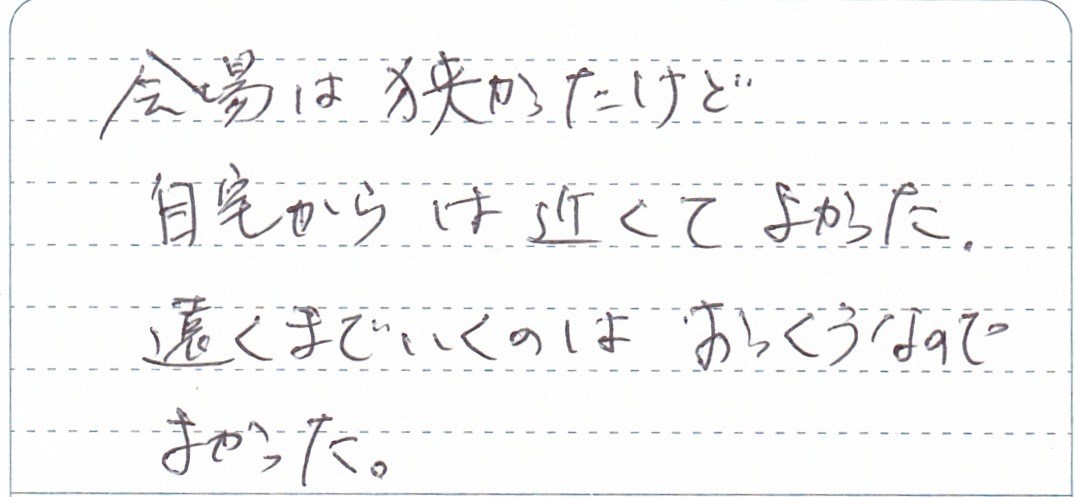 会場は狭かったけど
自宅からは近くてよかった.
遠くまでいくのはおっくうなので
よかった。